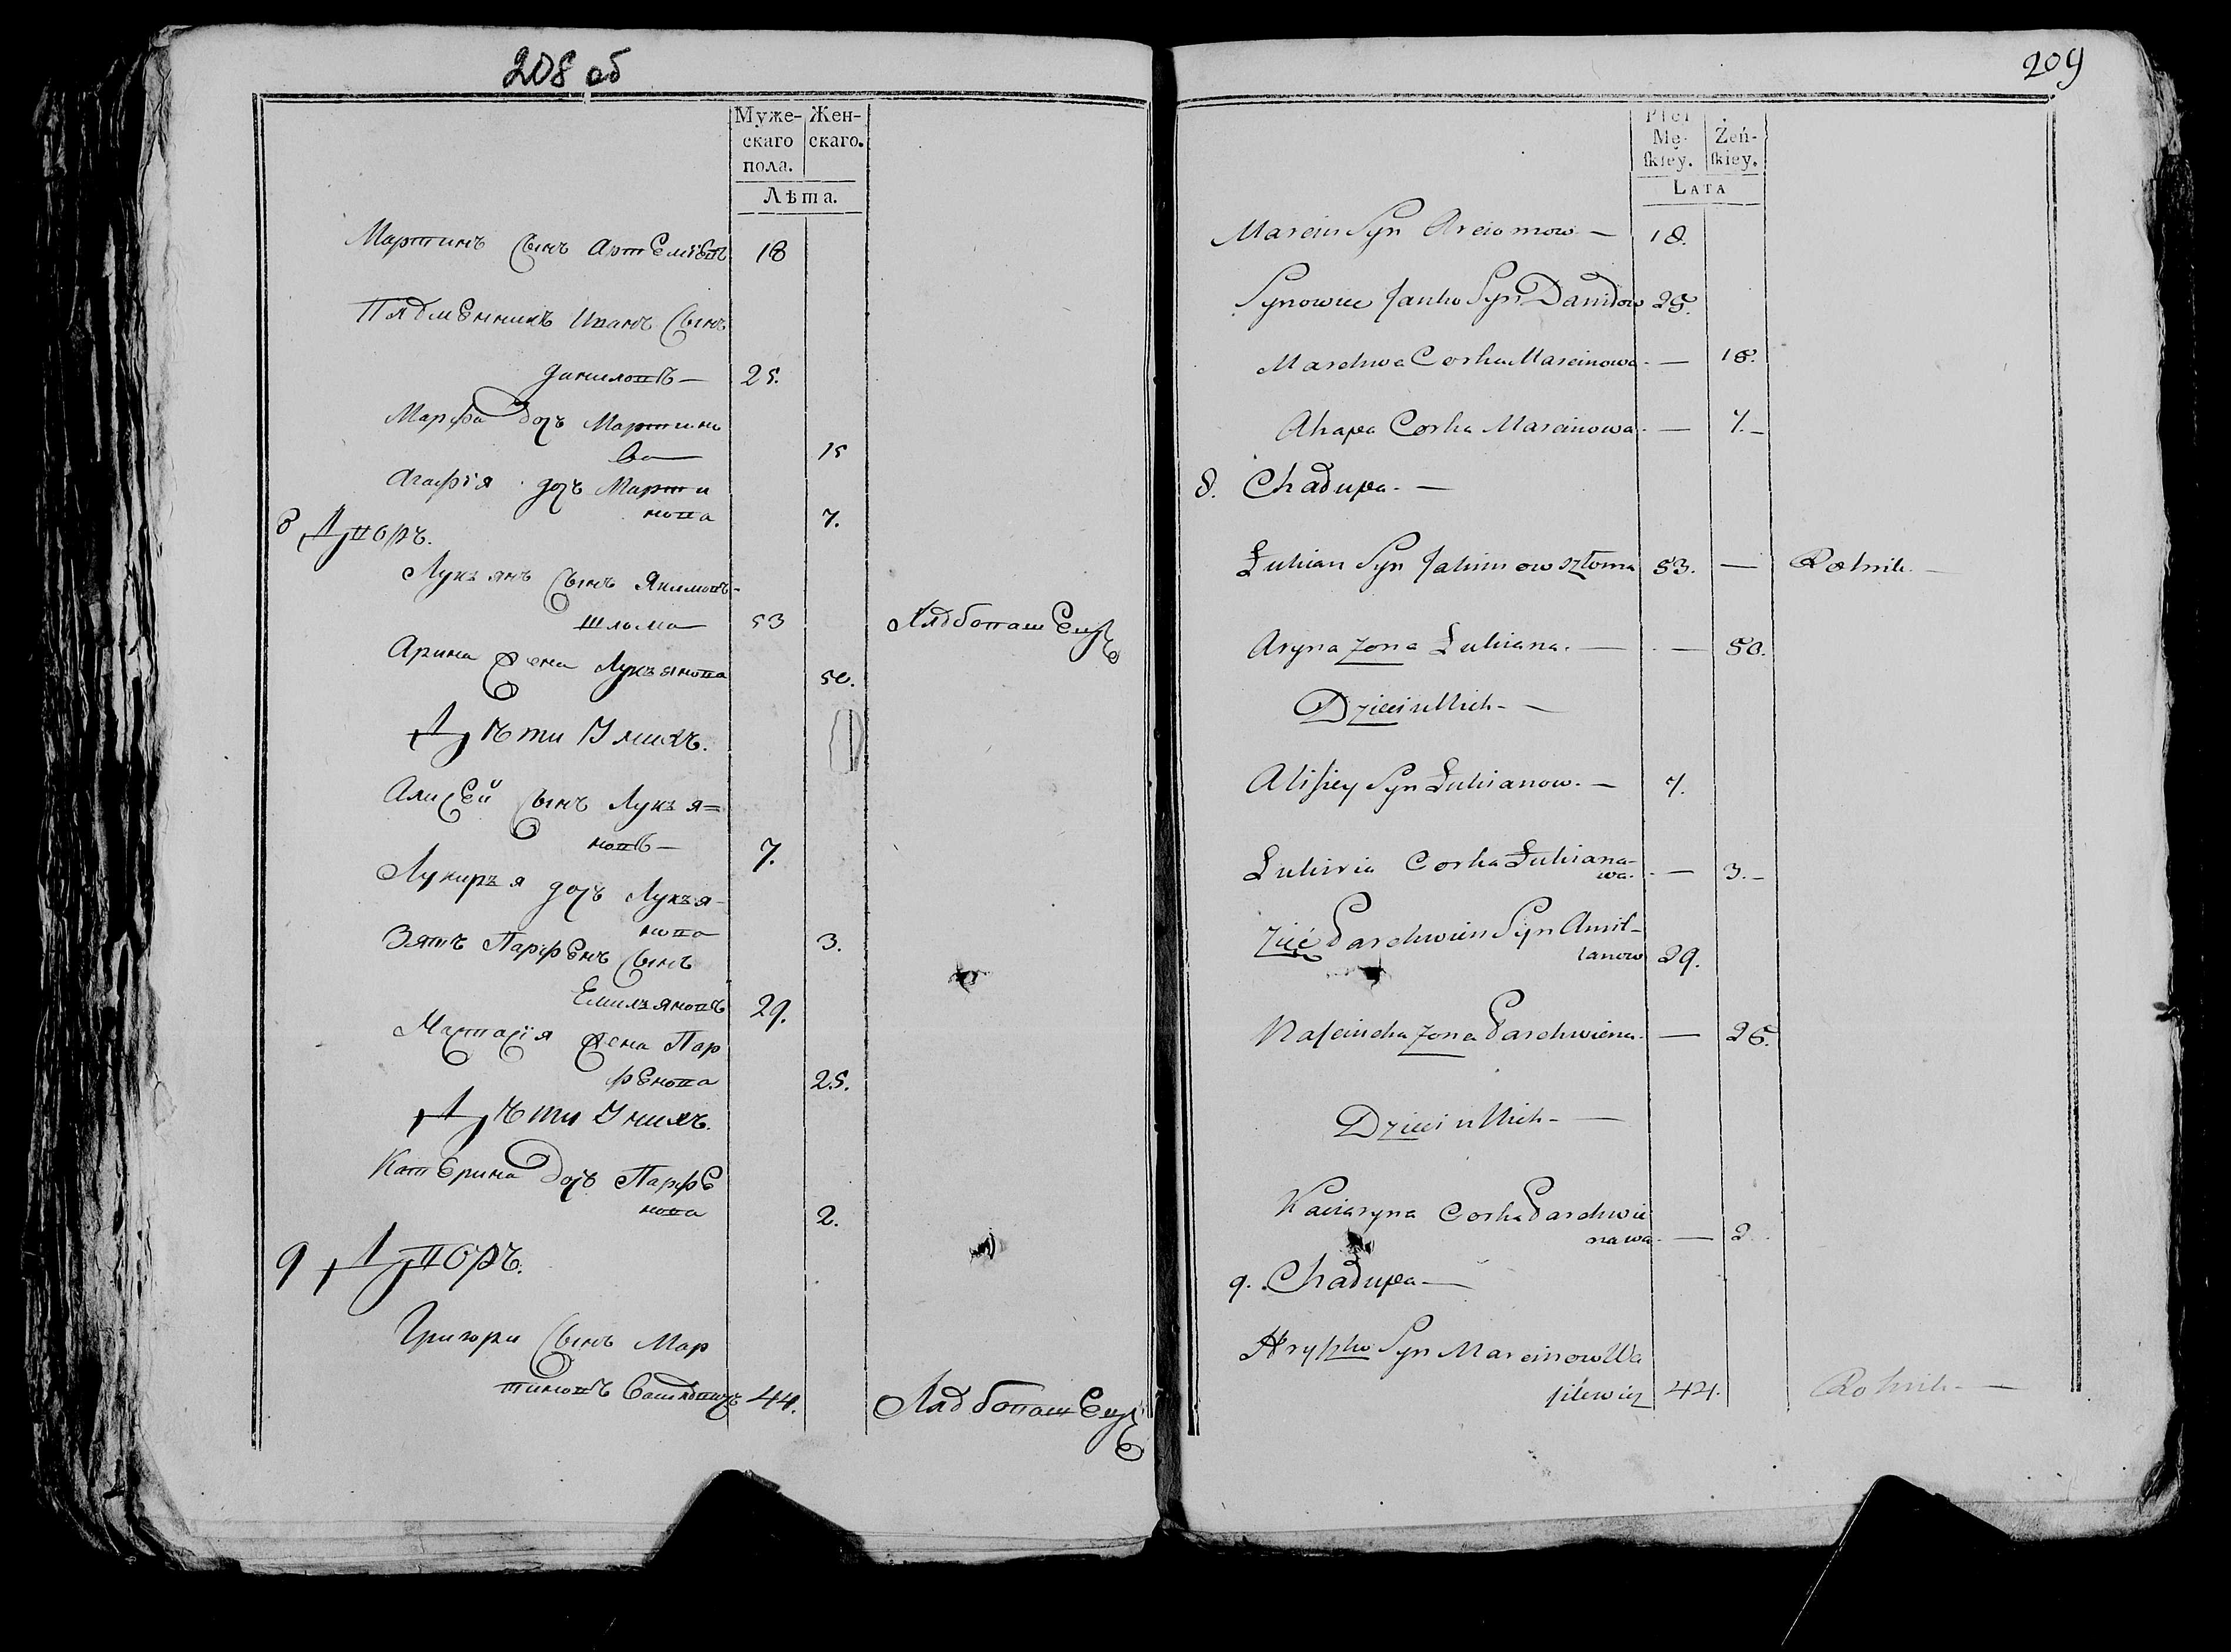 208 об
Муже-
скаго
пола.
Жен-
скаго.
Лѣта.
Мартинъ сынъ Артемiевъ 18
Плѣменникъ Иванъ сынъ
Даниловъ — 25.
Марфа дочь Мартино
ва — 15
Агафiя дочь Марти
нова 7.
8 Дворъ.
Лукьянъ сынъ Якимовъ-
Шлома 53
Хлѣбопашецъ
Арина жена Лукьянова 50.
Дѣти У нихъ.
Алисей сынъ Лукья=
новъ — 7.
Лукирья дочь Лукья-
нова 3.
Зять Парфенъ сынъ
Емильяновъ 29.
Настасiя жена Пар
фенова 25.
Дѣти У нихъ.
Катерина дочь Парфе
нова 2.
9 Дворъ.
Григори сынъ Мар
тиновъ Василевичъ 44.
Хлѣбопашецъ
209
Płci
Mę-
ſkiey.
Żeń-
ſkiey.
Lata
Marcin Syn Arciomow — 18.
Synowiec Janko Syn Daniłow 25.
Marchwa Corka Marcinowa — 15.
Ahapa Corka Marcinowa — 7. —
8. Chałupa. —
Łukian Syn Jakimow Szłoma 53. — Rolnik —
Aryna Zona Łukiana. — 50.
Dzieci u Nich —
Alisiey Syn Łukianow. — 7.
Łukiria Corka Łukiana-
wa. — 3. —
Zięć Parchwien Syn Amil-
ianow 29.
Naścincha Zona Parchwiena. — 25.
Dzieci u Nich —
Kaciaryna Corka Parchwie
nawa. — 2.
9. Chałupa —
Hryszko Syn Marcinow Wa
silewicz 44. Rolnik —